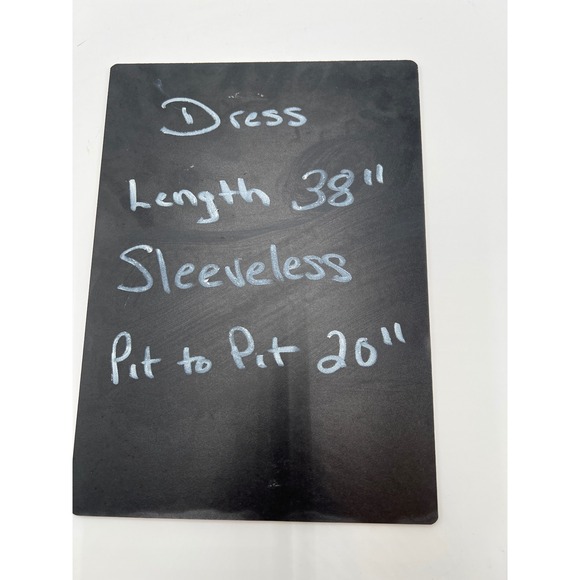 Dress
Length 38"
Sleeveless
Pit to Pit 20"